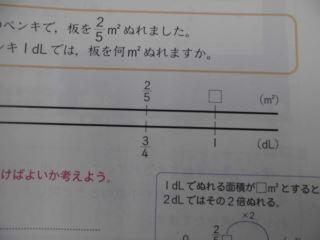 のペンキで，板を2/5 m²ぬれました。
ンキ1dLでは，板を何m²ぬれますか。
2/5 □ (m²)
3/4 1 (dL)
けばよいか考えよう。
1dLでぬれる面積が□m²とすると
2dLではその2倍ぬれる。
×2
0 2/5 □